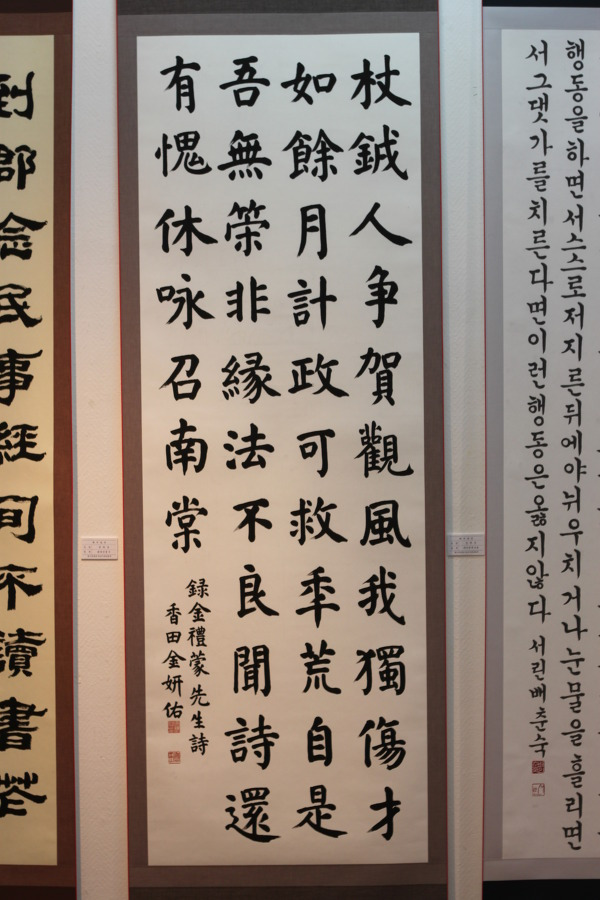 행동을하면서스스로저지른뒤에야뉘우치거나눈물을흘리면
서그댓가를치른다면이런행동은옳지않다 서린배춘숙
杖鉞人争賀觀風我獨傷才
如餘月計政可救秊荒自是
吾無荣非縁法不良聞詩還
有愧休咏召南棠
録金禮蒙先生詩
香田金妍佑
到郡念民事經旬不讀書花